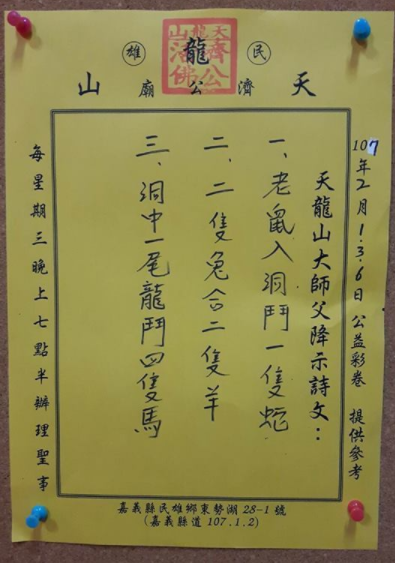 民雄
天龍山
濟公廟
天龍山
濟公
活佛
107年2月1.3.6日 公益彩卷 提供參考
天龍山大師父降示詩文：
一、老鼠入洞鬥一隻蛇
二、二隻兔合二隻羊
三、洞中一尾龍鬥四隻馬
每星期三晚上七點半辦理聖事
嘉義縣民雄鄉東勢湖28-1號
(嘉義縣道107.1.2)